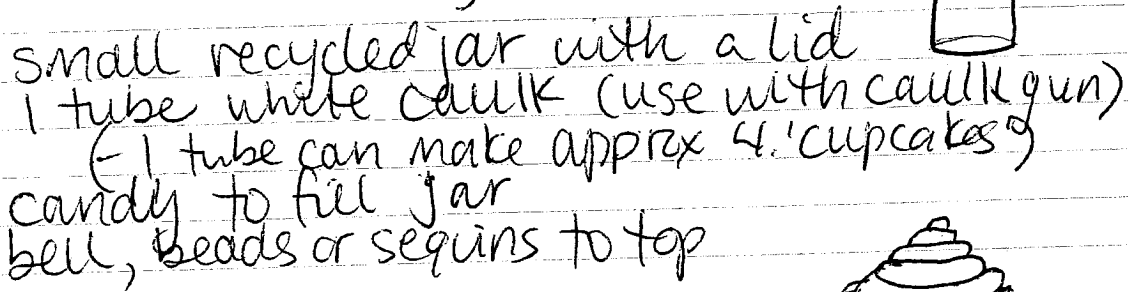 small recycled jar with a lid
1 tube white caulk (use with caulk gun)
(- 1 tube can make apprx 4 "cupcakes")
candy to fill jar
bell, beads or sequins to top